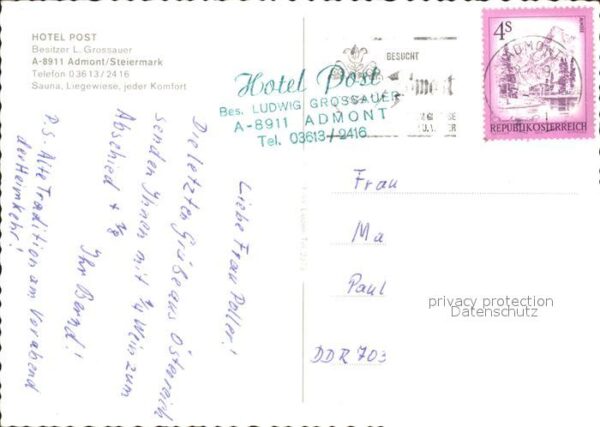 HOTEL POST
Besitzer L. Grossauer
A-8911 Admont/Steiermark
Telefon 03613/2416
Sauna, Liegewiese, jeder Komfort
Hotel Post
Bes. LUDWIG GROSSAUER
A-8911 ADMONT
Tel. 03613/2416
BESUCHT
Admont
4S
ADMONT
REPUBLIK ÖSTERREICH
Liebe Frau Poller!
Die letzten Grüße aus Österreich
senden Ihnen mit ¼ Wein zum
Abschied +
Ihr Bernd!
P.S. Alte Tradition am Vorabend
der Heimkehr!
Frau
Ma
Paul
DDR 703
privacy protection
Datenschutz